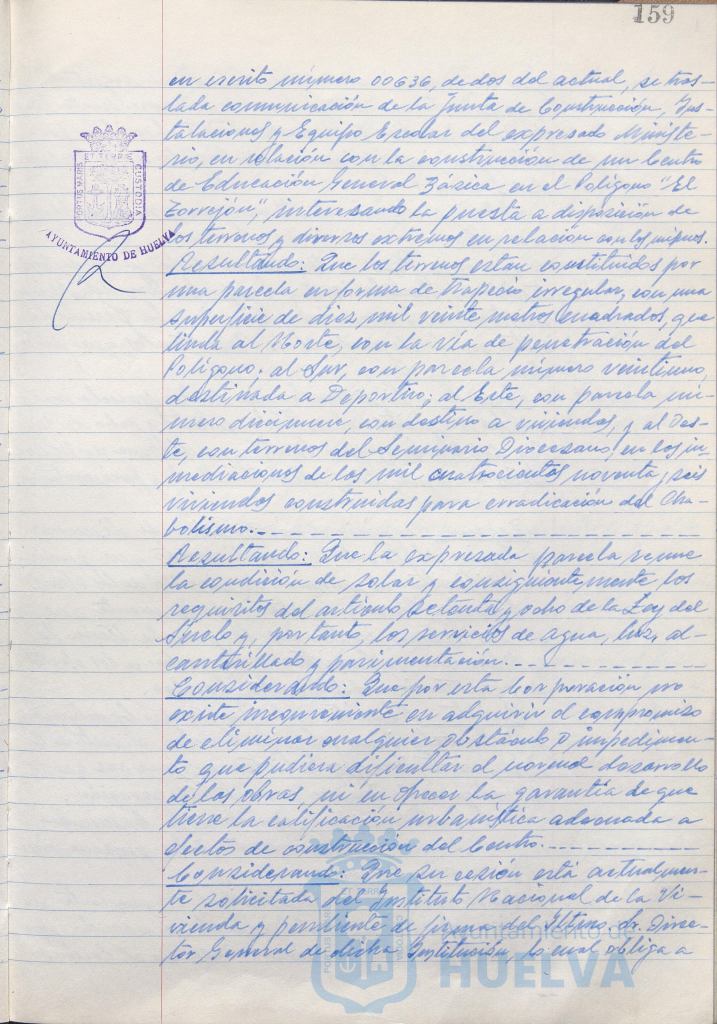 159
en escrito número 00636, de dos del actual, se tras-
lada comunicación de la Junta de Construcción, Ins-
talaciones y Equipo Escolar del expresado Ministe-
rio, en relación con la construcción de un Centro
de Educación General Básica en el Polígono "El
Torrejón", interesando la puesta a disposición de
los terrenos y diversos extremos en relación con los mismos.
PORTUS MARIS ET TERRÆ CUSTODIA
AYUNTAMIENTO DE HUELVA
Resultando: Que los terrenos estan constituidos por
una parcela en forma de trapecio irregular, con una
superficie de diez mil veinte metros cuadrados, que
linda al Norte, con la vía de penetración del
Polígono; al Sur, con parcela número veintiuno,
destinada a Deportivo; al Este, con parcela nú-
mero diecinueve, con destino a viviendas, y al Oes-
te, con terrenos del Seminario Diocesano, en las in-
mediaciones de las mil cuatrocientas noventa y seis
viviendas construidas para erradicación del Cha-
bolismo.
Resultando: Que la expresada parcela reune
la condición de solar y consiguientemente los
requisitos del artículo setenta y ocho de la Ley del
Suelo y, por tanto, los servicios de agua, luz, al-
cantarillado y pavimentación.
Considerando: Que por esta Corporación no
existe inconveniente en adquirir el compromiso
de eliminar cualquier obstáculo o impedimen-
to que pudiera dificultar el normal desarrollo
de las obras, ni en ofrecer la garantía de que
tiene la calificación urbanística adecuada a
efectos de construcción del Centro.
Considerando: Que su cesión está actualmen-
te solicitada del Instituto Nacional de la Vi-
vienda y pendiente de firma del Iltmo. Sr. Direc-
tor General de dicha Institución, lo cual obliga a
Ayuntamiento de
HUELVA